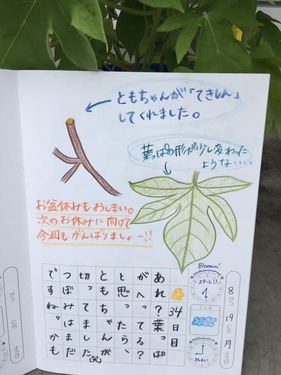 ともちゃんが「てきしん」
してくれました。
葉っぱの形が少し変わった
ような....
お盆休みもおしまい。
次のお休みに向けて
今週もがんばりましょー!!
あれ?葉っぱ
がへってる?
と思ったら、
ともちゃんが
切ってました(笑)
つぼみはまだ
ですね。かも
34
日
目
Bloomin'
スタート!!
8
19
月